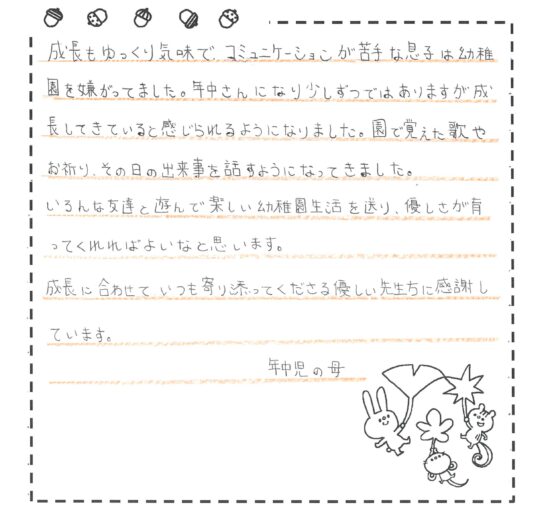 成長もゆっくり気味で、コミュニケーションが苦手な息子は幼稚
園を嫌がってました。年中さんになり少しずつではありますが成
長してきていると感じられるようになりました。園で覚えた歌や
お祈り、その日の出来事を話すようになってきました。
いろんな友達と遊んで楽しい幼稚園生活を送り、優しさが育
ってくれればよいなと思います。
成長に合わせて、いつも寄り添ってくださる優しい先生方に感謝し
ています。
年中児の母